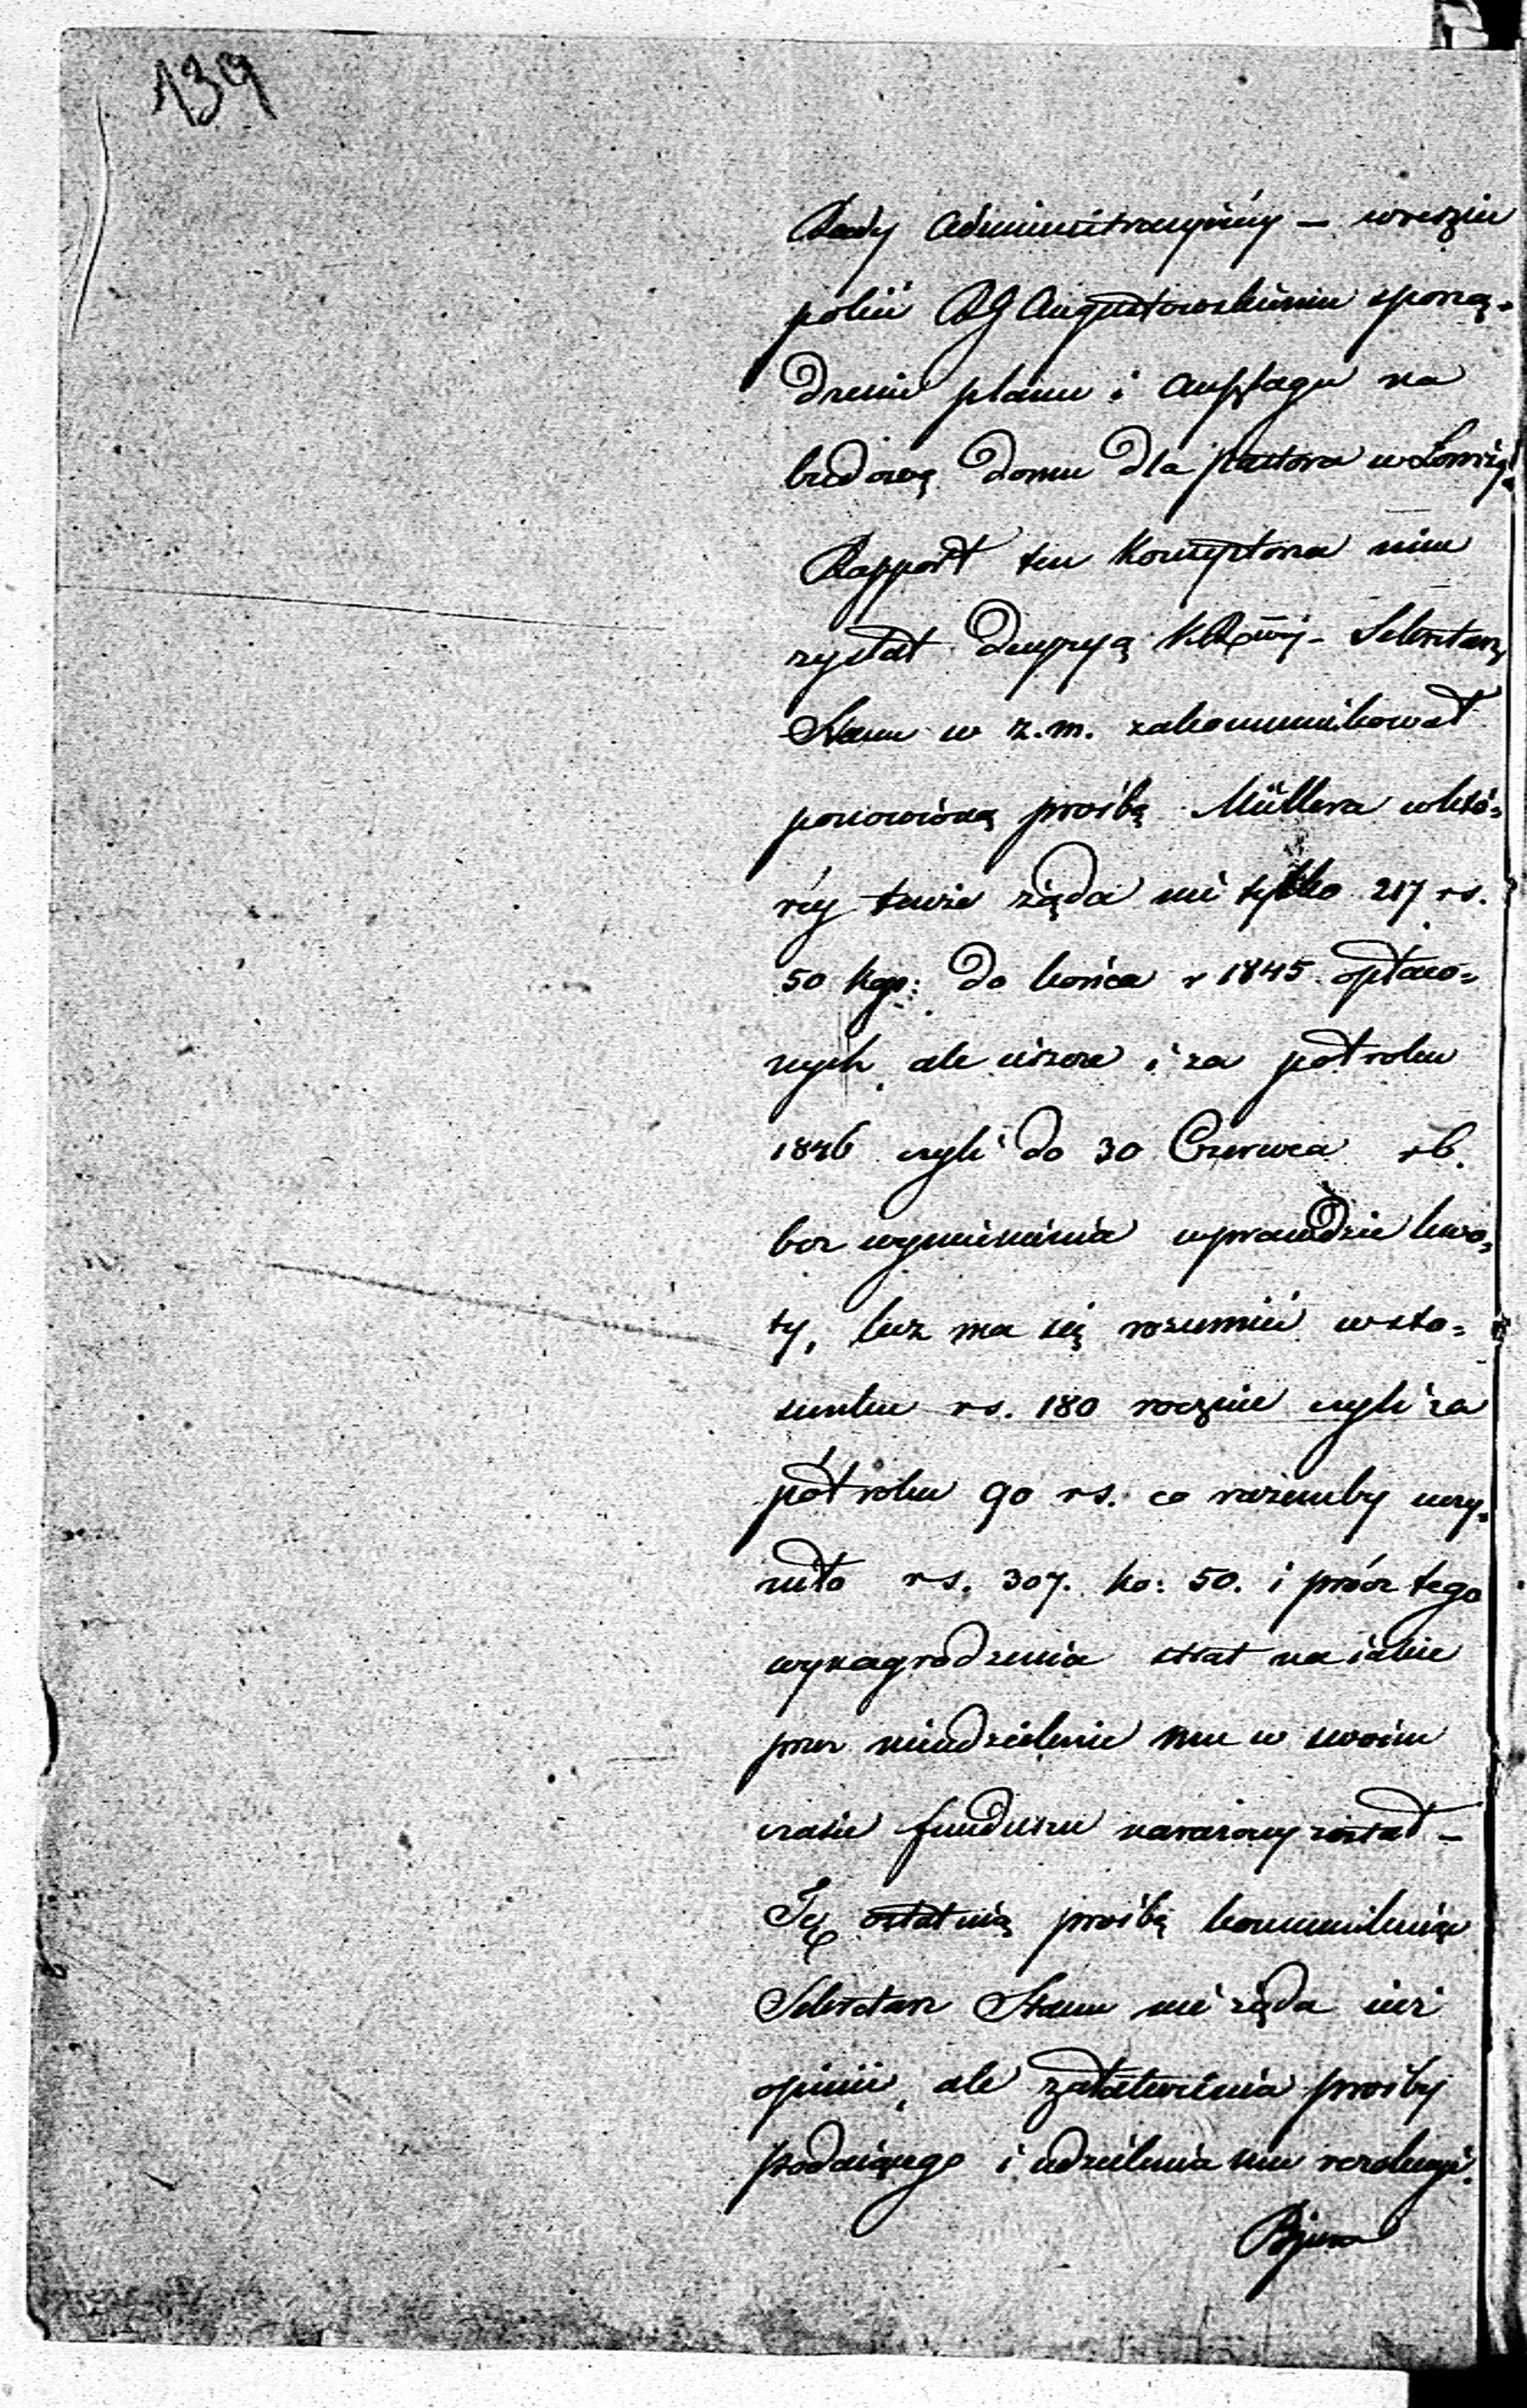 139
Rady Administracyjnéj – wreszcie
polecić RG Augustowskiemu sporzą-
dzenie planu i anszlagu na
budowę domu dla pastora w Łomży.
Rapport ten Konsystorza nim
zyskał decyzyą – Sekretarz
Stanu w z.m. zakommunikował
ponowioną prośbę Müllera w któ-
réj tenże żąda nie tylko 217 rs.
50 kop: do końca r 1845 opłaco-
nych, ale jeszcze i za pół roku
1846 czyli do 30 Czerwca rb.
bez wymienienia wprawdzie kwo-
ty, lecz ma się rozumieć w sto-
sunku rs. 180 rocznie czyli za
pół roku 90 rs. co razemby uczy-
niło rs. 307. ko: 50. i prócz tego
wynagrodzenia strat na jakie
przez nieudzielenie mu w swoim
czasie funduszu narażony został –
Tę ostatnią prośbę kommunikując
Sekretarz Stanu nie żąda już
opinii, ale załatwienia prośby
podającego i udzielenia mu rezolucyi.